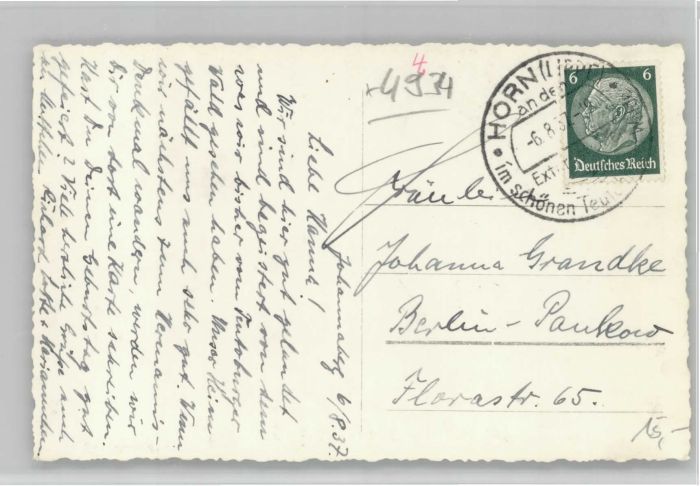 Johannaberg 6/8.37.
Liebe Hanna!
Wir sind hier gut gelandet
und sind begeistert von dem
was wir bisher vom Teutoburger
Wald gesehen haben. Unser Heim
gefällt uns auch sehr gut. Wenn
wir nächstens zum Hermanns-
Denkmal wandern, werden wir
Dir von dort eine Karte schreiben.
Hast Du Deinen Geburtstag gut
gefeiert? Viele herzliche Grüße auch
Lotte + Marianne
4
4934
HORN (LIPPE)
an de
-6.8.37
Ext
im schönen Teu
6 6
Deutsches Reich
Fräulein
Johanna Grandke
Berlin-Pankow
Florastr. 65.
15,-